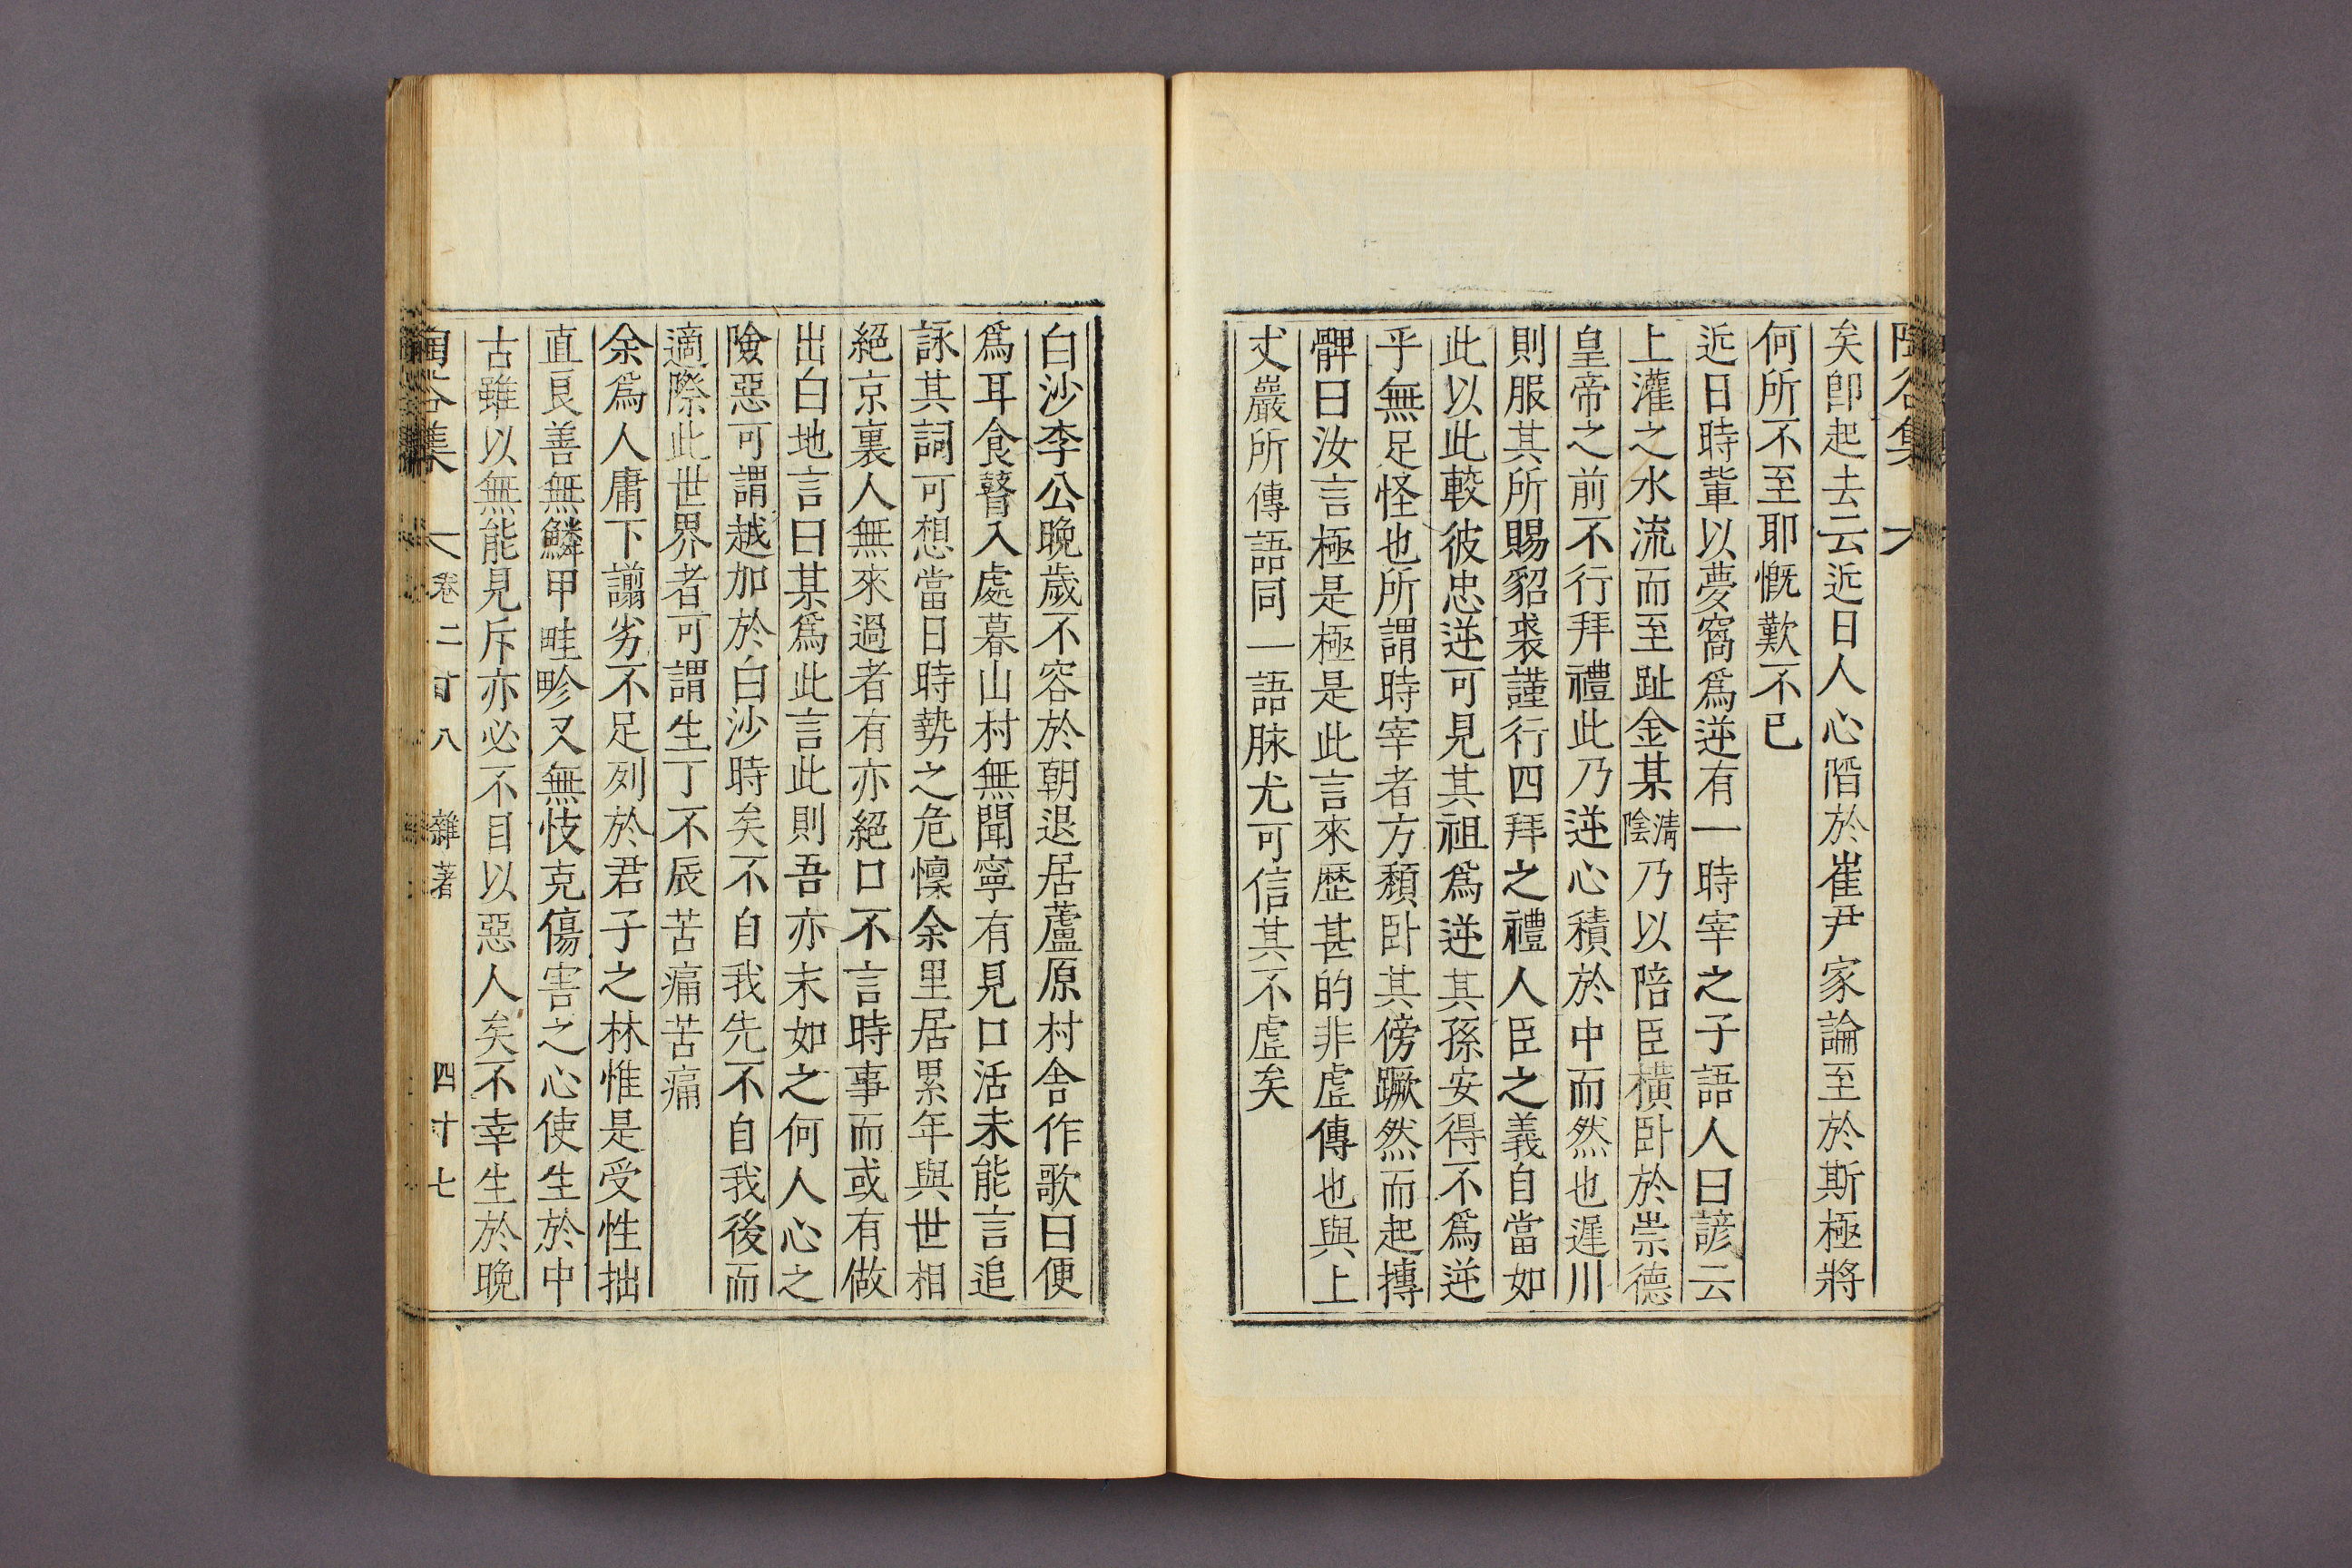 陶谷集
矣卽起去云近日人心陷於崔尹家論至於斯極將
何所不至耶慨歎不已
近日時輩以夢窩爲逆有一時宰之子語人曰諺云
上灌之水流而至趾金某淸陰乃以陪臣橫臥於崇德
皇帝之前不行拜禮此乃逆心積於中而然也遲川
則服其所賜貂裘謹行四拜之禮人臣之義自當如
此以此較彼忠逆可見其祖爲逆其孫安得不爲逆
乎無足怪也所謂時宰者方頹臥其傍蹶然而起搏
髀曰汝言極是極是此言來歷甚的非虛傳也與上
丈巖所傳語同一語脉尤可信其不虛矣
白沙李公晩歲不容於朝退居蘆原村舍作歌曰便
爲耳食瞽入處暮山村無聞寧有見口活未能言追
詠其詞可想當日時勢之危懍余里居累年與世相
絕京裏人無來過者有亦絕口不言時事而或有做
出白地言曰某爲此言此則吾亦末如之何人心之
險惡可謂越加於白沙時矣不自我先不自我後而
適際此世界者可謂生丁不辰苦痛苦痛
余爲人庸下謭劣不足列於君子之林惟是受性拙
直艮善無鱗甲畦畛又無忮克傷害之心使生於中
古雖以無能見斥亦必不目以惡人矣不幸生於晚
陶谷集 卷二十八 雜著 四十七